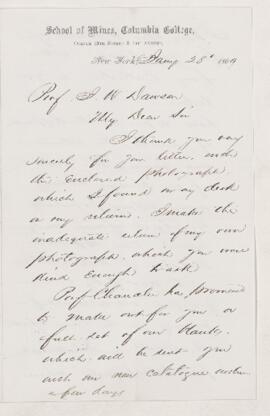 School of Mines, Columbia College,
Corner 49th Street & 4th Avenue,
New York, Jany 28th 1869
Prof J W Dawson
My Dear Sir
I thank you very
sincerely for your letter, with
the enclosed photograph,
which I found on my desk
on my return. I make the
inadequate return of my own
photograph, which you were
kind enough to ask
Prof Chandler has promised
to make out for you a
full set of our blanks.
which will be sent you
with our new catalogue within
a few days